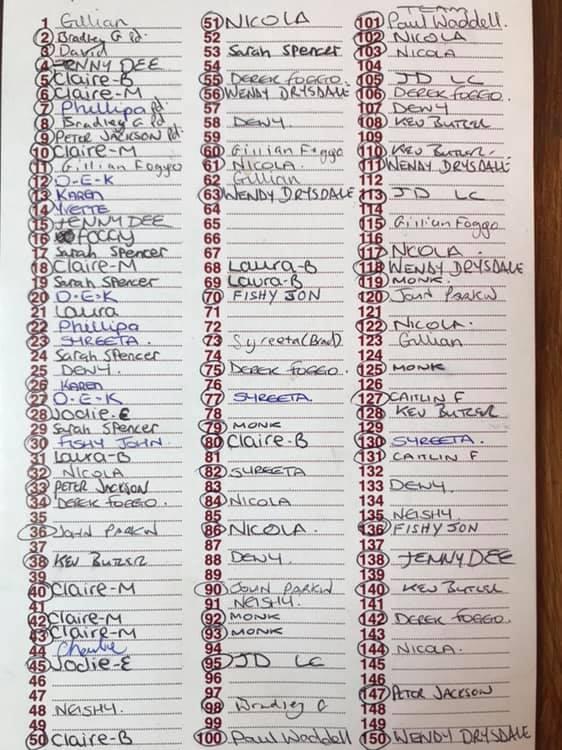 1 Gillian
2 Bradley G Pd.
3 David
4 JENNY DEE
5 Claire-B
6 Claire-M
7 Phillipa Pd.
8 Bradley G Pd
9 PETER JACKSON Pd.
10 Claire-M
11 Gillian Foggo
12 D.E-K
13 KAREN
14 YVETTE
15 JENNY DEE
16 FOGGY
17 Sarah Spencer
18 Claire-M
19 Sarah Spencer
20 D.E-K
21 Laura
22 Phillipa
23 SYREETA.
24 Sarah Spencer
25 DENY.
26 KAREN
27 D.E-K
28 Jodie.E
29 Sarah Spencer
30 FISHY JOHN.
31 Laura-B
32 NICOLA
33 PETER JACKSON
34 DEREK FOGGO.
35
36 JOHN PARKIN
37
38 KEV BUTLER
39
40 Claire-M
41
42 Claire-M
43 Claire-M
44 Charlie
45 Jodie-E
46
47
48 NEISHY.
49
50 Claire-B
51 NICOLA
52
53 Sarah Spencer
54
55 DEREK FOGGO
56 WENDY DRYSDALE
57
58 DENY.
59
60 Gillian Foggo
61 NICOLA.
62 Gillian
63 WENDY DRYSDALE
64
65
66
67
68 Laura-B
69 Laura-B
70 FISHY JON
71
72
73 Syreeta (Brad).
74
75 DEREK FOGGO.
76
77 SYREETA.
78
79 MONK
80 Claire-B
81
82 SYREETA
83
84 NICOLA
85
86 NICOLA.
87
88 DENY
89
90 JOHN PARKIN
91 NEISHY.
92 MONK
93 MONK
94
95 JD LC
96
97
98 Bradley G
99
100 Paul Waddell
TEAM
101 Paul Waddell.
102 NICOLA
103 NICOLA
104
105 JD LC
106 DEREK FOGGO.
107 DENY
108 KEV BUTLER
109
110 KEV BUTLER.
111 WENDY DRYSDALE
112
113 JD LC
114
115 Gillian Foggo
116
117 NICOLA.
118 WENDY DRYSDALE
119 MONK.
120 JOHN PARKIN
121
122 NICOLA.
123 Gillian
124
125 MONK
126
127 CAITLIN F
128 KEV BUTLER
129
130 SYREETA.
131 CAITLIN F
132
133 DENY.
134
135 NEISHY.
136 FISHY JON
137
138 JENNY DEE
139
140 KEV BUTLER
141
142 DEREK FOGGO.
143
144 NICOLA.
145
146
147 PETER JACKSON
148
149
150 WENDY DRYSDALE